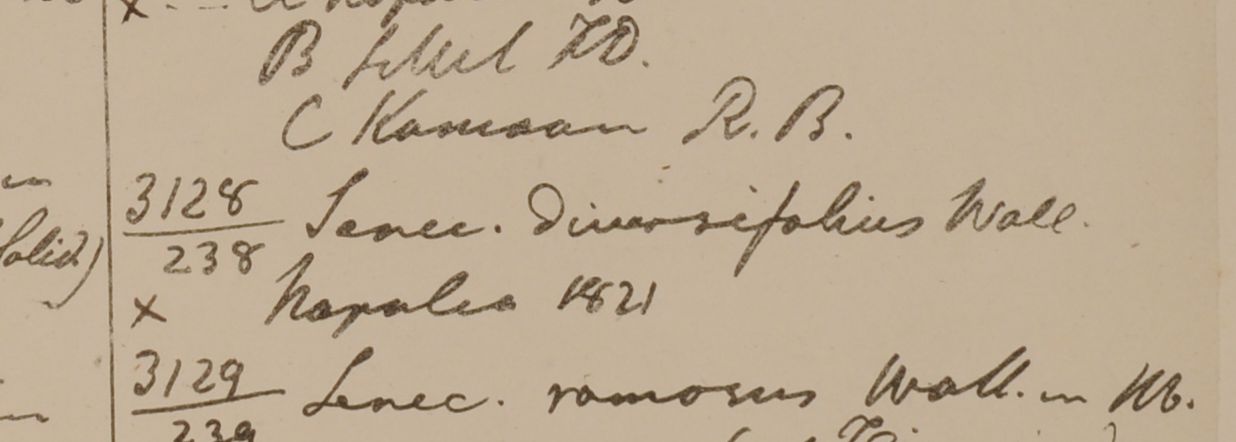 B Silhet FD.
C Kamaon R. B.
3128
238 Senec. Diversifolius Wall.
x Napalia 1821
3129
239 Senec. ramosus Wall. in Hb.